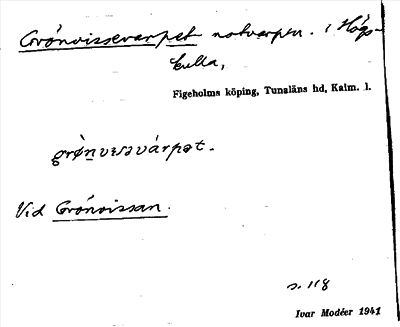 Grönvissevarpet notvarpen. i Högs-
kulla,
Figeholms köping, Tunaläns hd, Kalm. l.
grö̀nvɩsəvárpət.
Vid Grönvissan.
s. 118
Ivar Modéer 1941